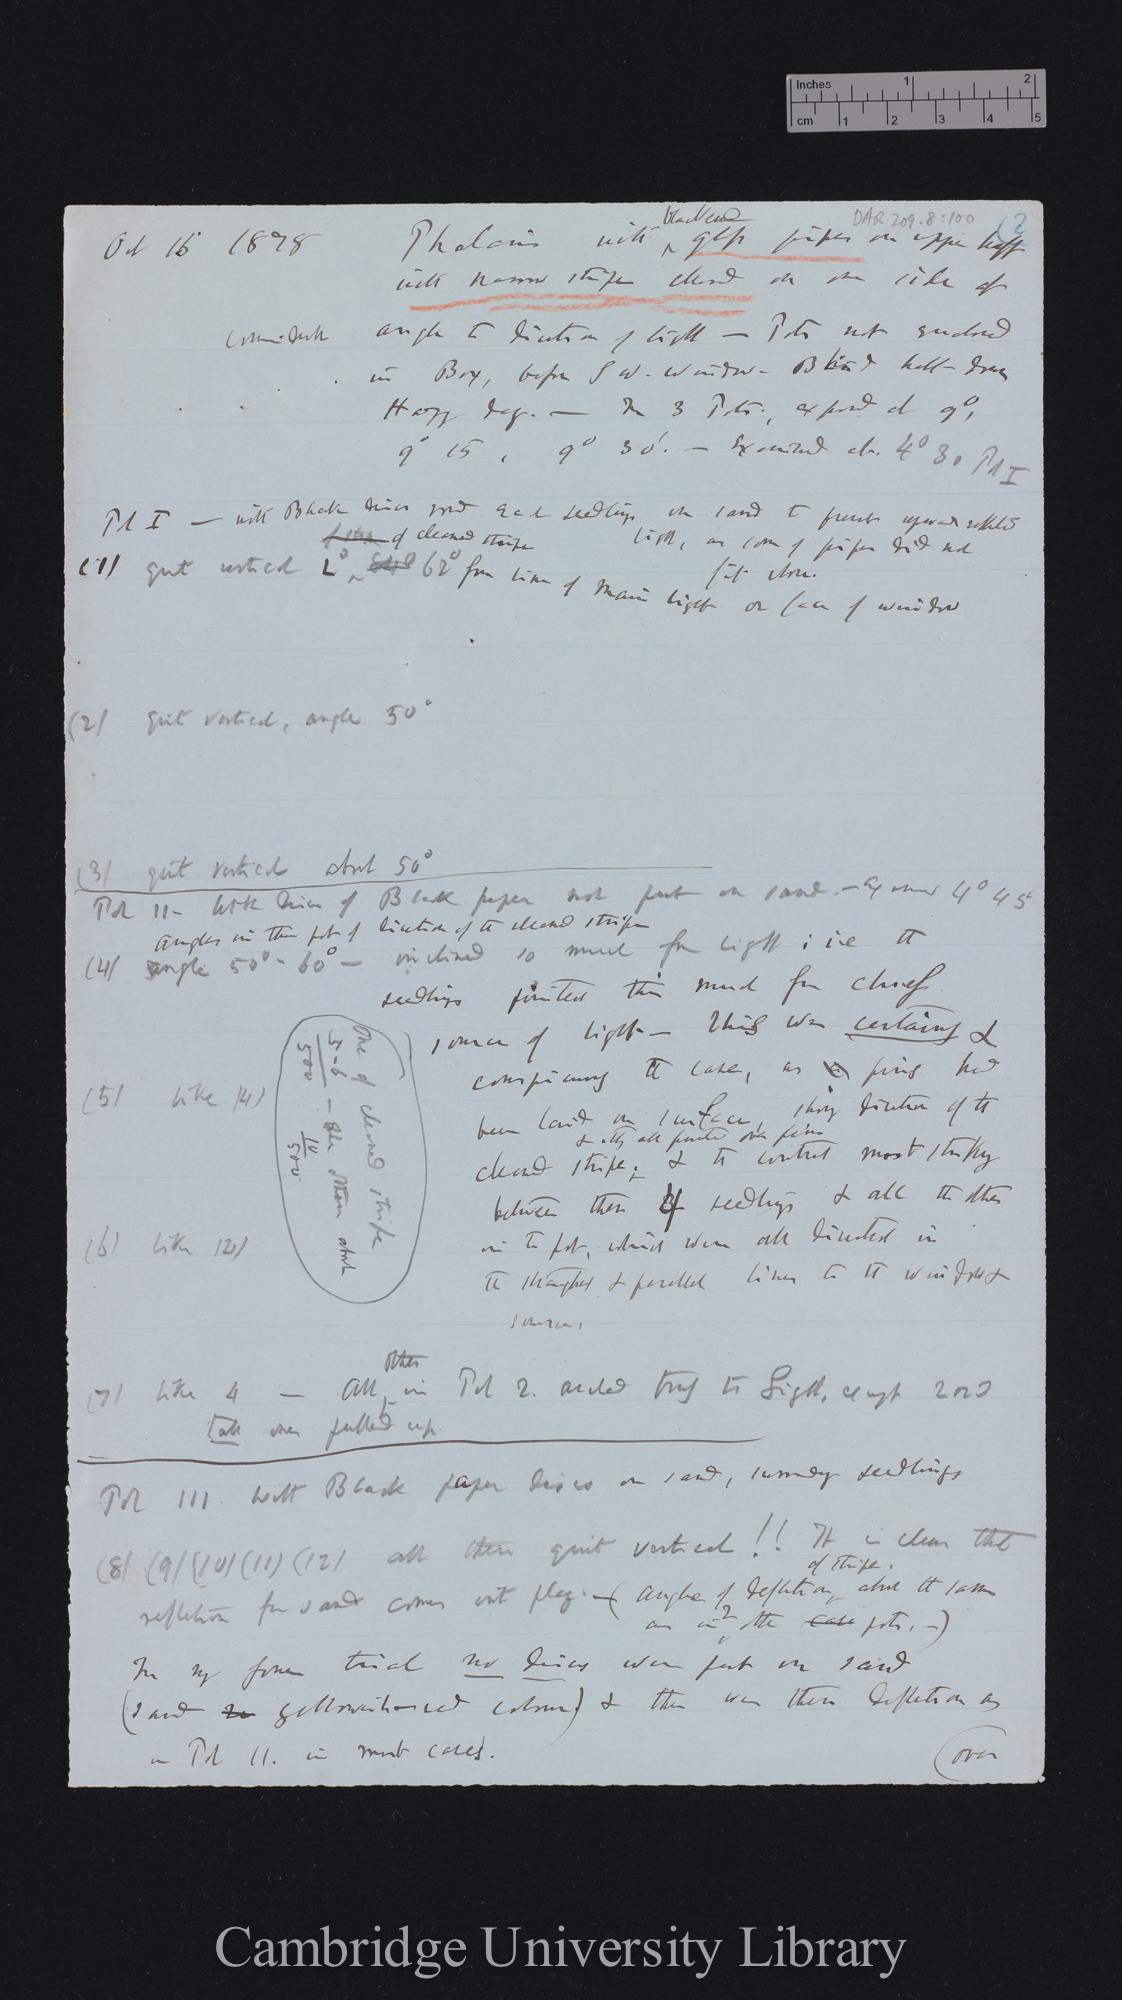 Inches 1 2
cm 1 2 3 4 5
DAR 209.8:100 (2
blackened
Oct 16 1878 Phalaris with ^ glass pipes on upper half
with narrow stripe cleaned on one side at
angle to direction of light — Pots not enclosed
in Box, before S W. window - Blind half-down
Hazy day. — The 3 Pots, exposed at 9°,
9° 15, 9° 30'. — Examined at 4° 30 Pot I
Pot I — with Black discs round each seedling on sand to prevent upward reflected
light, as some of pipes did not
fit close.
of cleaned stripe
(1) quit vertical L° 62° from line of main light or face of window
(2) quit vertical, angle 50°
(3) quit vertical about 50°
Pot II - with discs of Black paper not put on sand. — Examined 4° 45
angles in this pot of direction of tt cleaned stripe
(4) angle 50° - 60° — inclined so much from light; i.e. tt
seedlings pointed this much from chief
source of light — This was certainly &
conspicuously tt case, as pins had
been laid on surface, showing direction of tt
cleaned stripe; & tt contrast most striking
between these 4 seedlings & all the others
in tt pot, which were all directed in
tt straightest & parallel lines to tt window &
source.
(5) like (4)
One of cleaned stripe
5-6/500 — the others about
11/500
(6) like (4)
other
(7) like 4 — All ^ in Pot 2. arched truly to Light, except 2 or 3
tall ones pulled up.
Pot III with Black paper discs on sand, surrounding seedlings
(8) (9) (10) (11) (12) all these quit vertical!! It is clear that
of stripe.
reflection from sand comes into play — (angles of deflection, about tt same
as in 2 other case pots. —)
In my former trial no discs were put on sand
(sand yellowish-red colour) & there was then deflection as
in Pot II. in most cases.
(over
Cambridge University Library